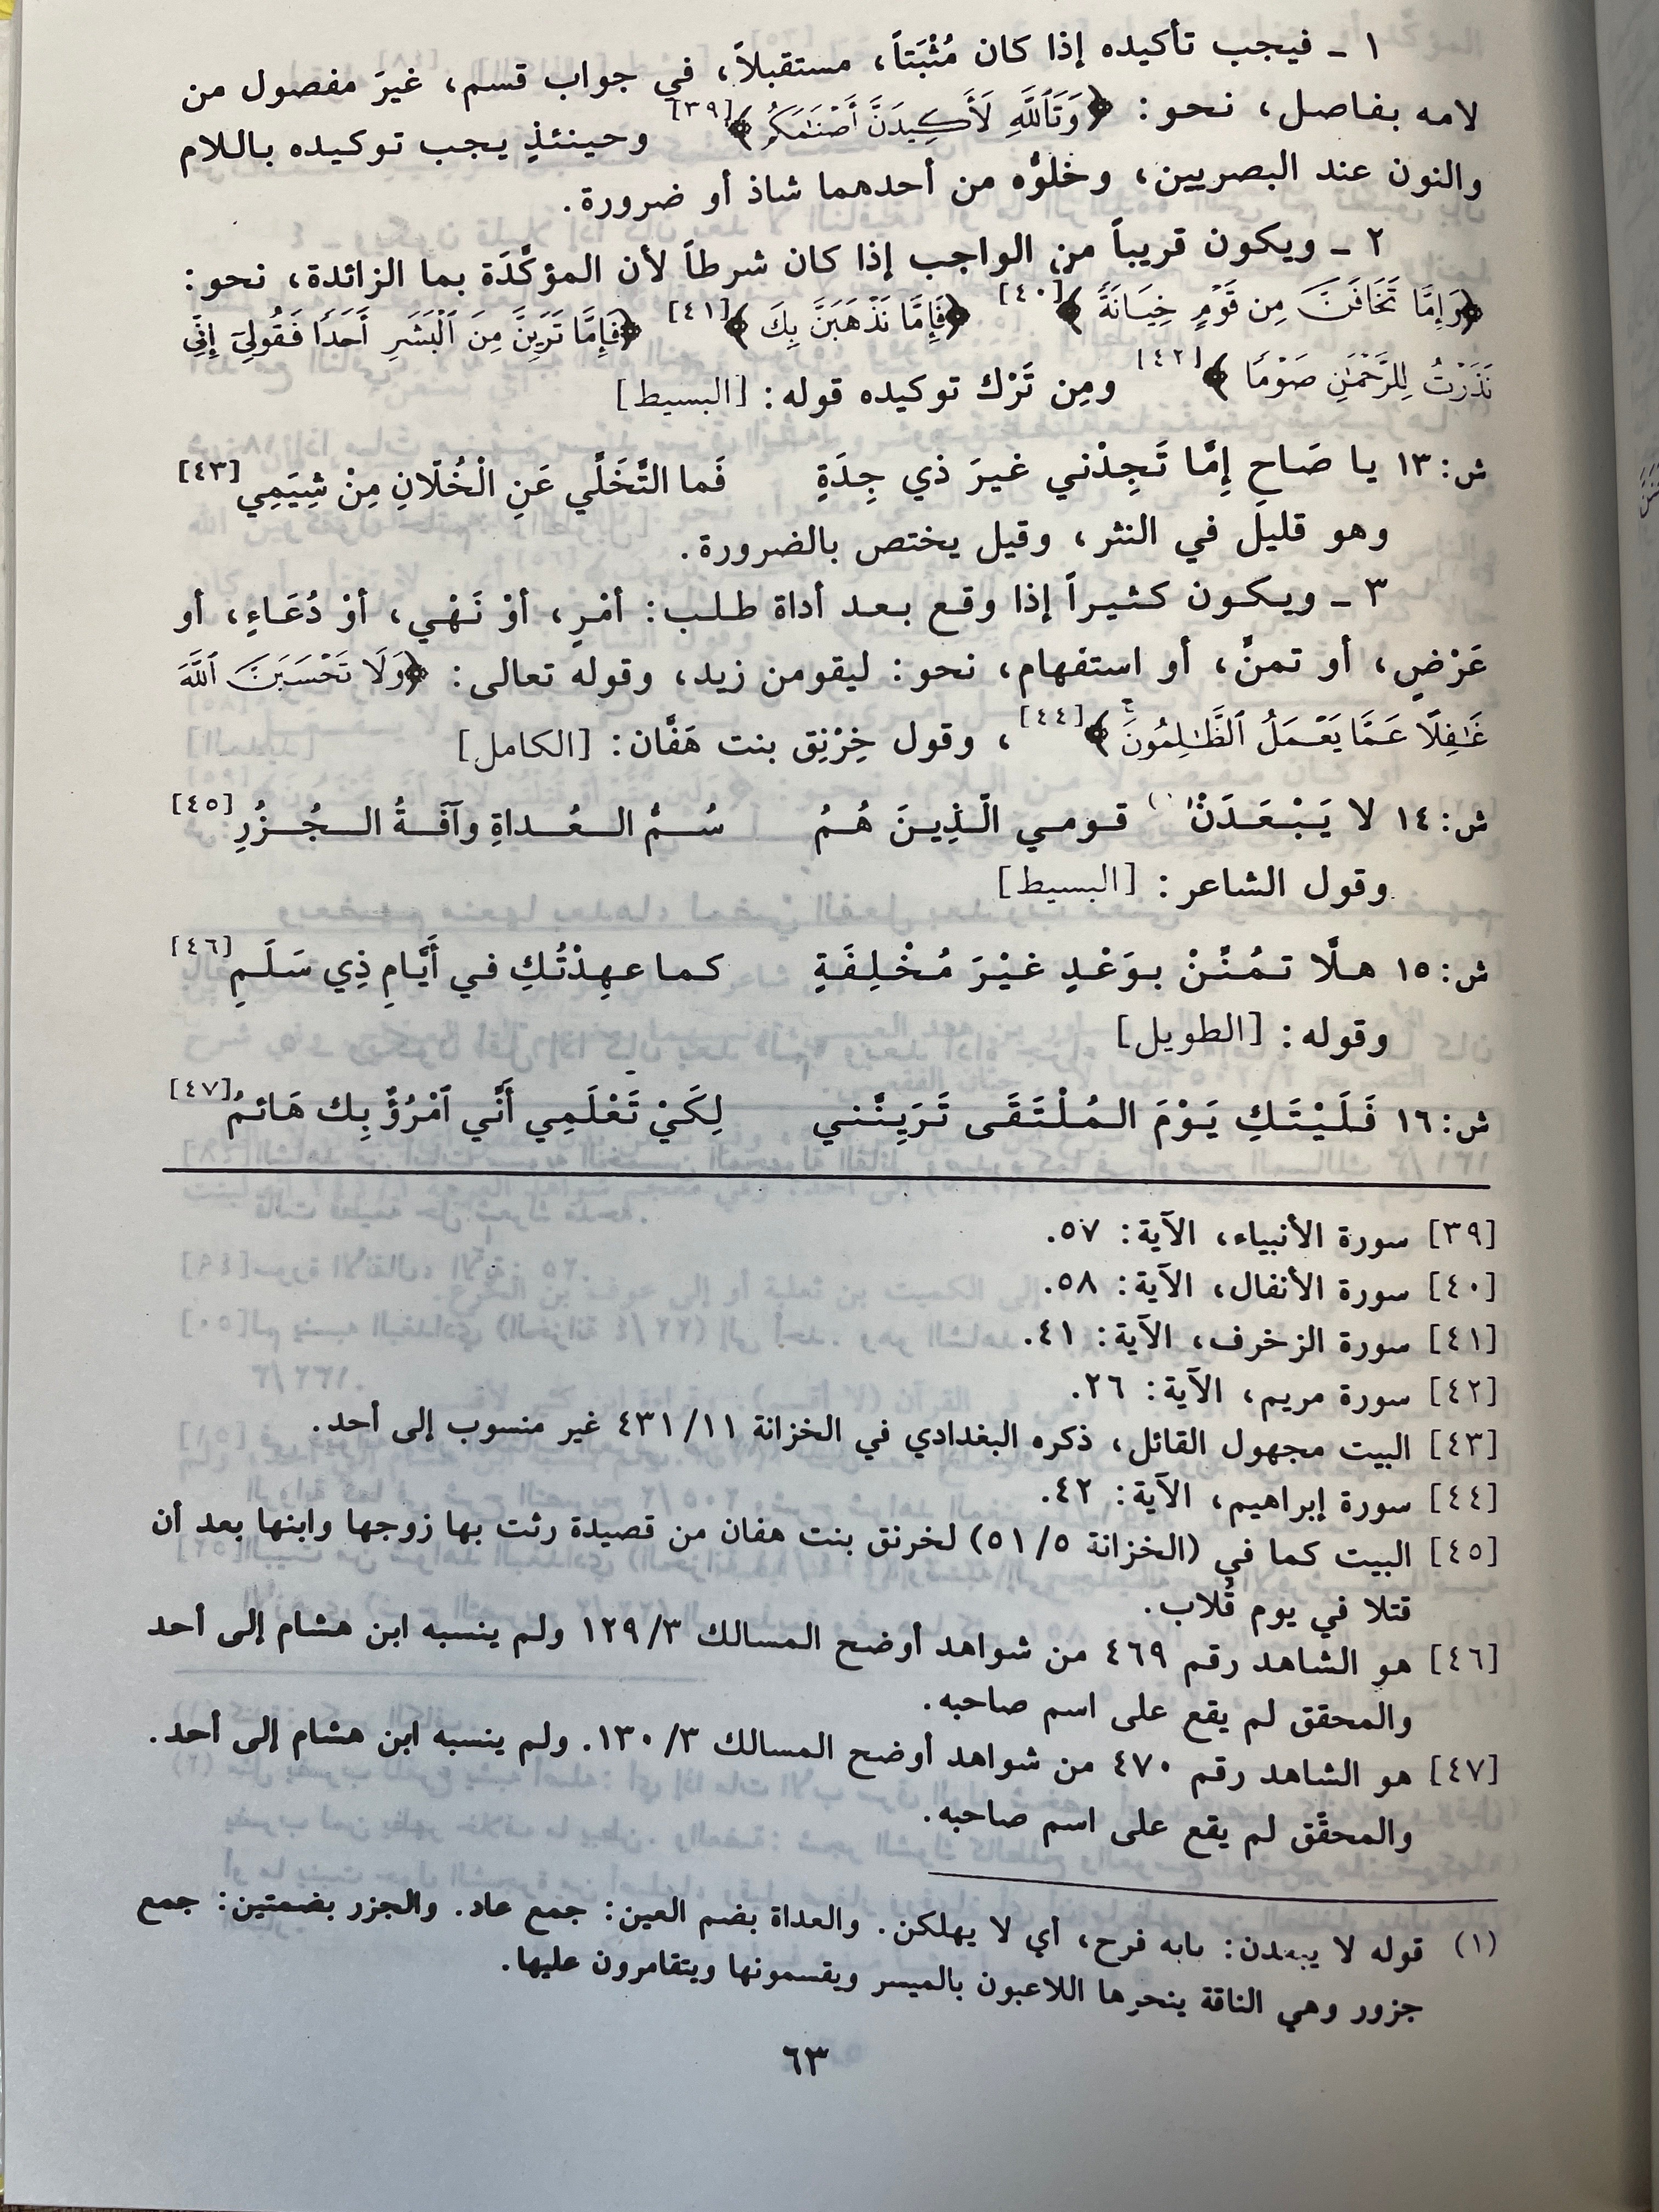 ١ ـ فيجب تأكيده إذا كان مُثْبَتاً، مستقبلاً، في جواب قسم، غيرَ مفصول من
لامه بفاصل، نحو: ﴿وَتَٱللَّهِ لَأَكِيدَنَّ أَصْنَٰمَكُم﴾[٣٩] وحينئذٍ يجب توكيده باللام
والنون عند البصريين، وخلوُّه من أحدهما شاذ أو ضرورة.
٢ ـ ويكون قريباً من الواجب إذا كان شرطاً لأن المؤكَّدَة بما الزائدة، نحو:
﴿وَإِمَّا تَخَافَنَّ مِن قَوْمٍ خِيَانَةً﴾[٤٠] ﴿فَإِمَّا نَذْهَبَنَّ بِكَ﴾[٤١] ﴿فَإِمَّا تَرَيِنَّ مِنَ ٱلْبَشَرِ أَحَدًا فَقُولِىٓ إِنِّى
نَذَرْتُ لِلرَّحْمَٰنِ صَوْمًا﴾[٤٢] ومِن تَرْك توكيده قوله: [البسيط]
ش: ١٣ يا صَاحِ إِمَّا تَجِدْني غيرَ ذي جِدَةٍ فَما التَّخَلِّي عَنِ الْخُلّانِ مِنْ شِيَمِي[٤٣]
وهو قليل في النثر، وقيل يختص بالضرورة.
٣ ـ ويكون كثيراً إذا وقع بعد أداة طلب: أمْرٍ، أوْ نَهْي، أوْ دُعَاءٍ، أو
عَرْضٍ، أو تمنٍّ، أو استفهام، نحو: ليقومن زيد، وقوله تعالى: ﴿وَلَا تَحْسَبَنَّ ٱللَّهَ
غَٰفِلًا عَمَّا يَعْمَلُ ٱلظَّٰلِمُونَ ۚ﴾[٤٤]، وقول خِرْنِق بنت هَفَّان: [الكامل]
ش: ١٤ لا يَبْعَدَنْ(١) قومي الّذِينَ هُمُ سُمُّ العُداةِ وآفَةُ الجُزُرِ[٤٥]
وقول الشاعر: [البسيط]
ش: ١٥ هلَّا تمُنِّنْ بوَعْدٍ غيْرَ مُخْلِفَةٍ كما عهِدْتُكِ في أَيَّامِ ذِي سَلَمِ[٤٦]
وقوله: [الطويل]
ش: ١٦ فَلَيْتَكِ يَوْمَ المُلْتَقَى تَرَيِنَّني لِكَيْ تَعْلَمِي أَنِّي ٱمْرُؤٌ بِك هَائمُ[٤٧]
[٣٩] سورة الأنبياء، الآية: ٥٧.
[٤٠] سورة الأنفال، الآية: ٥٨.
[٤١] سورة الزخرف، الآية: ٤١.
[٤٢] سورة مريم، الآية: ٢٦.
[٤٣] البيت مجهول القائل، ذكره البغدادي في الخزانة ٤٣١/١١ غير منسوب إلى أحد.
[٤٤] سورة إبراهيم، الآية: ٤٢.
[٤٥] البيت كما في (الخزانة ٥١/٥) لخرنق بنت هفان من قصيدة رثت بها زوجها وابنها بعد أن
قتلا في يوم قُلاب.
[٤٦] هو الشاهد رقم ٤٦٩ من شواهد أوضح المسالك ١٢٩/٣ ولم ينسبه ابن هشام إلى أحد
والمحقق لم يقع على اسم صاحبه.
[٤٧] هو الشاهد رقم ٤٧٠ من شواهد أوضح المسالك ١٣٠/٣. ولم ينسبه ابن هشام إلى أحد.
والمحقِّق لم يقع على اسم صاحبه.
(١) قوله لا يبعدن: بابه فرح، أي لا يهلكن. والعداة بضم العين: جمع عاد. والجزر بضمتين: جمع
جزور وهي الناقة ينحرها اللاعبون بالميسر ويقسمونها ويتقامرون عليها.
٦٣